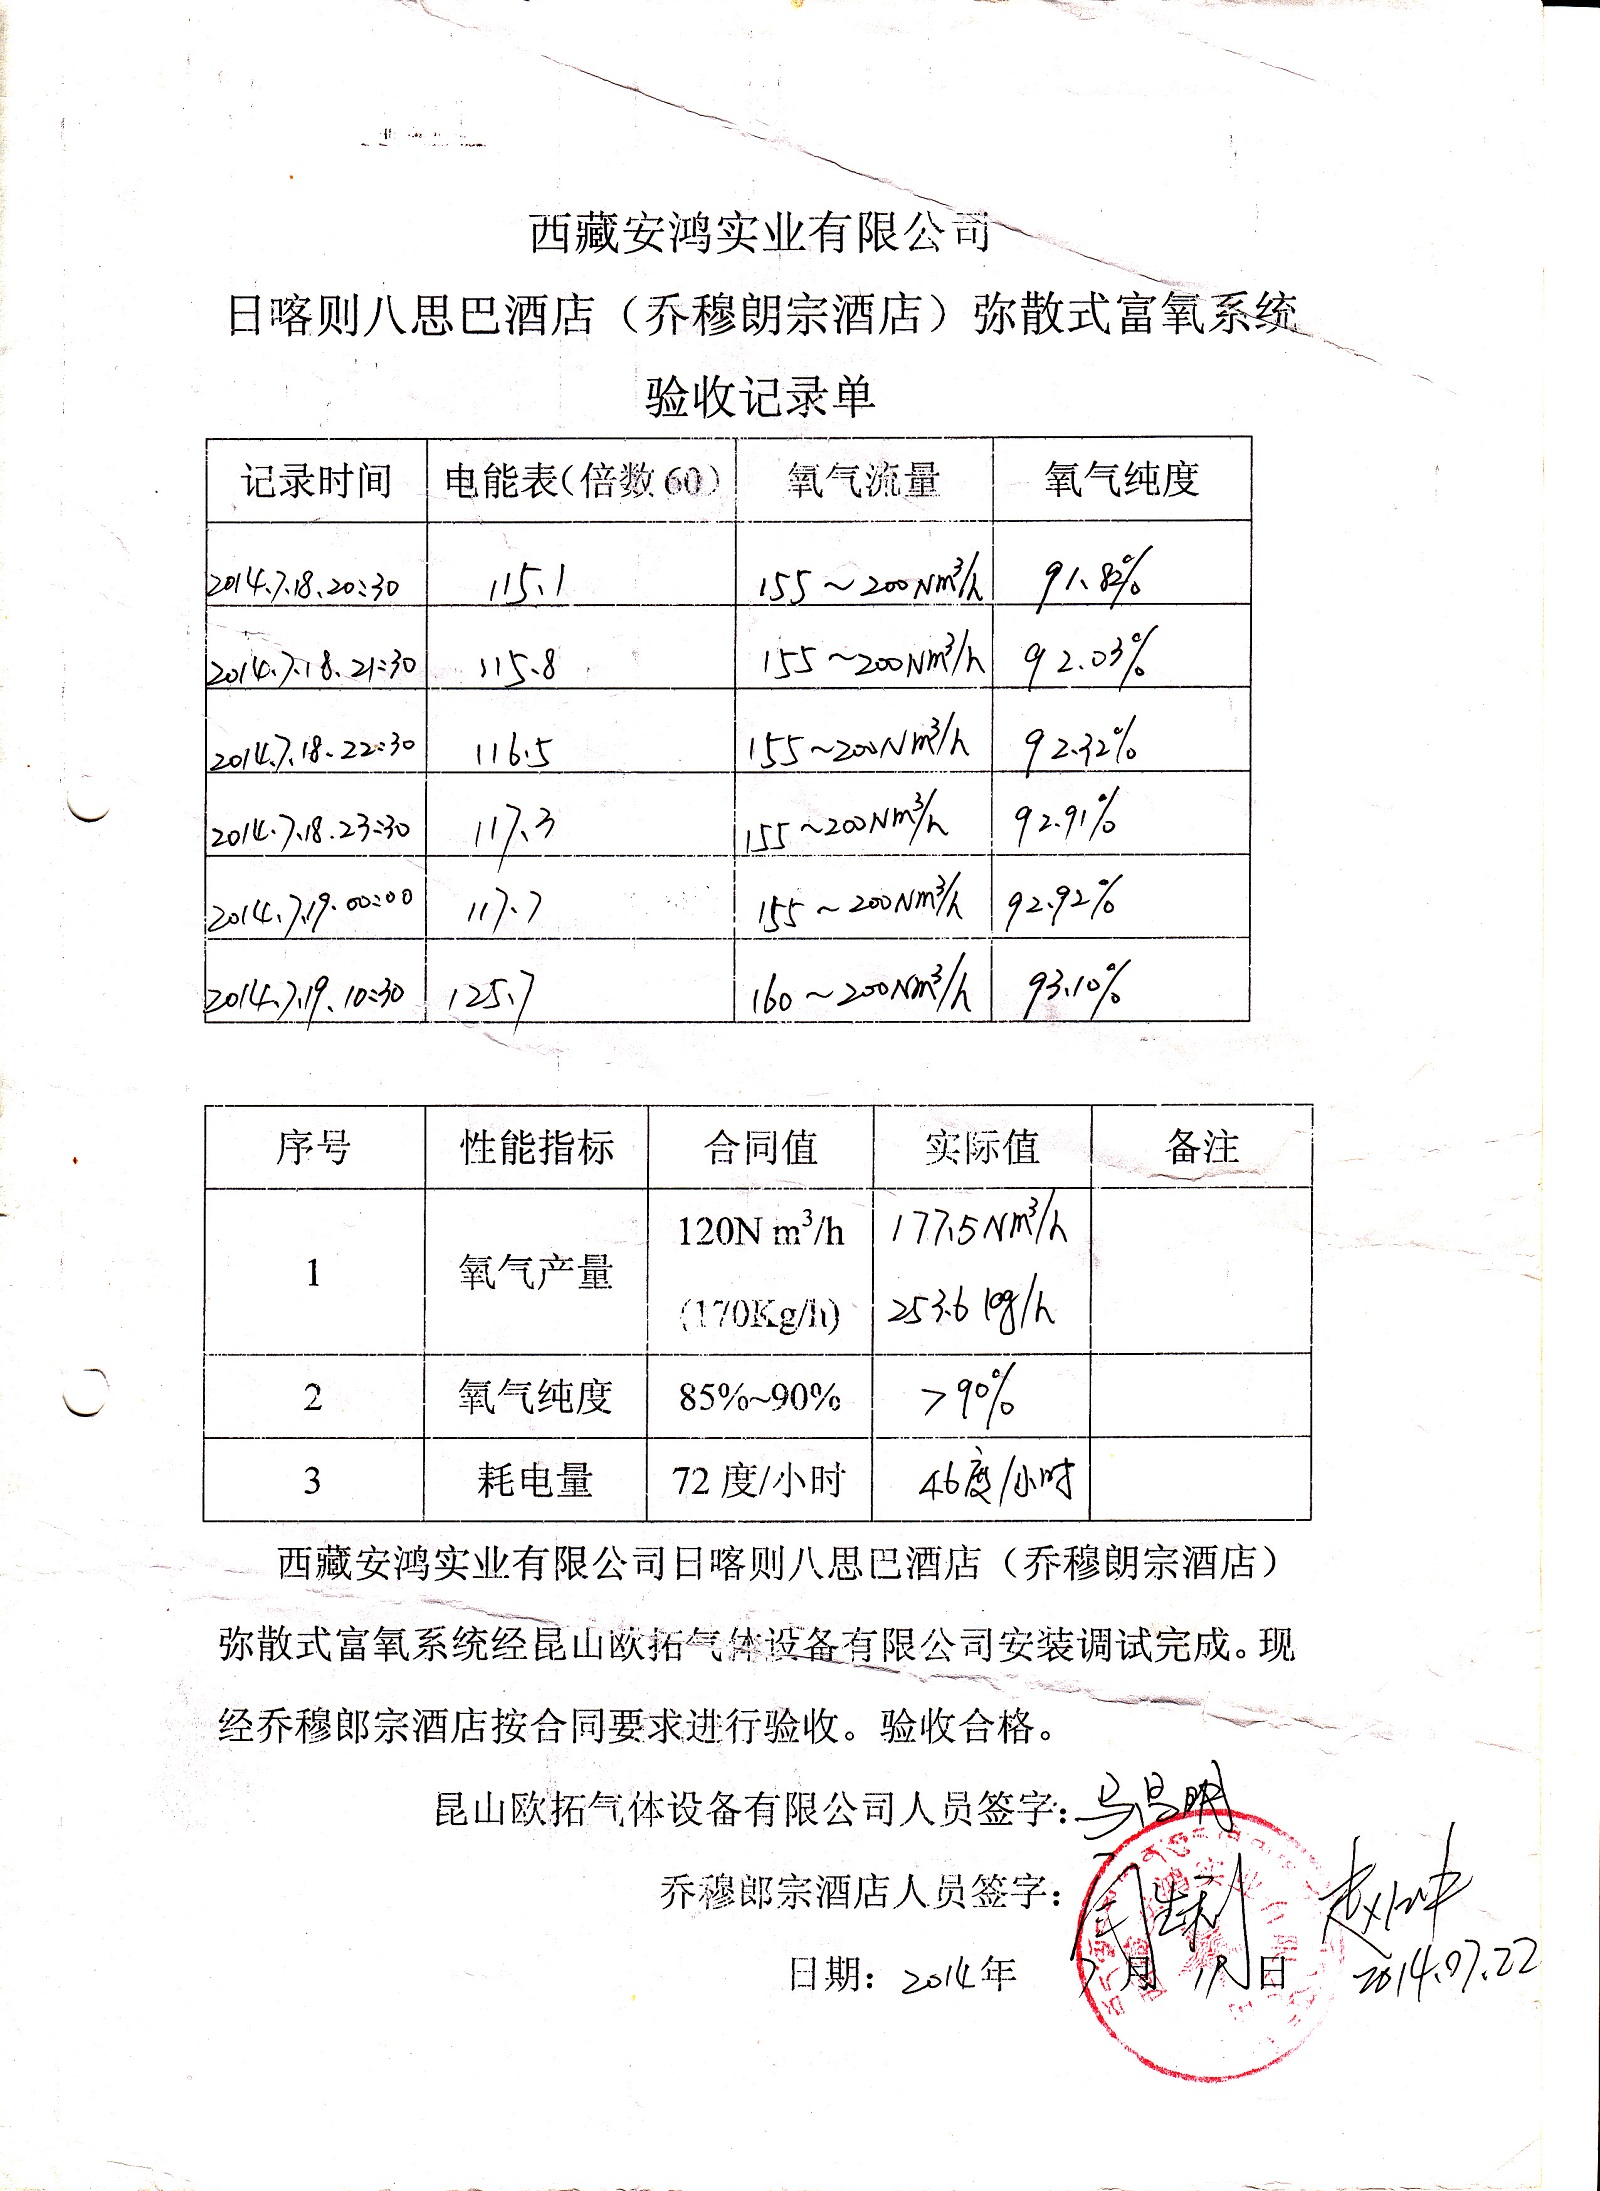 西藏安鸿实业有限公司
日喀则八思巴酒店（乔穆朗宗酒店）弥散式富氧系统
验收记录单
记录时间 电能表（倍数60） 氧气流量 氧气纯度
2014.7.18.20:30 115.1 155～200Nm³/h 91.82%
2014.7.18.21:30 115.8 155～200Nm³/h 92.03%
2014.7.18.22:30 116.5 155～200Nm³/h 92.32%
2014.7.18.23:30 117.3 155～200Nm³/h 92.91%
2014.7.19.00:00 117.7 155～200Nm³/h 92.92%
2014.7.19.10:30 125.7 160～200Nm³/h 93.10%
序号 性能指标 合同值 实际值 备注
1 氧气产量 120N m³/h 177.5Nm³/h
(170Kg/h) 253.6kg/h
2 氧气纯度 85%~90% >90%
3 耗电量 72 度/小时 46度/小时
西藏安鸿实业有限公司日喀则八思巴酒店（乔穆朗宗酒店）
弥散式富氧系统经昆山欧拓气体设备有限公司安装调试完成。现
经乔穆郎宗酒店按合同要求进行验收。验收合格。
昆山欧拓气体设备有限公司人员签字：
乔穆郎宗酒店人员签字：
日期：2014年 7月 19日 2014.07.22